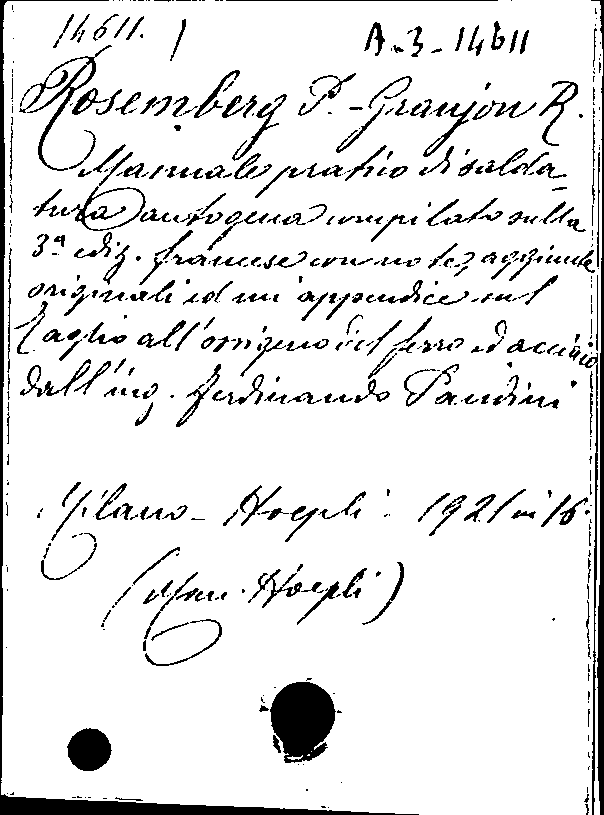 14611. / A-3-14611
Rosemberg P.-Granjon R.
Manuale pratico di salda-
tura autogena compilato sulla
3ª ediz. francese con note, aggiunte
originali ed un'appendice sul
taglio all'ossigeno del ferro ed acciaio
dall'ing. Ferdinando Pandini
Milano - Hoepli - 1921 in 16.
(Man. Hoepli)